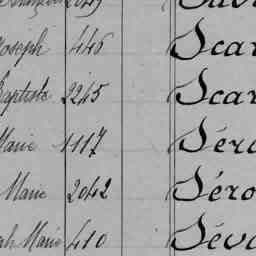 Joseph 446 Scar
Baptiste 2245 Scar
Marie 1117 Séro
Marie 2042 Séro
Marie 410 Séva